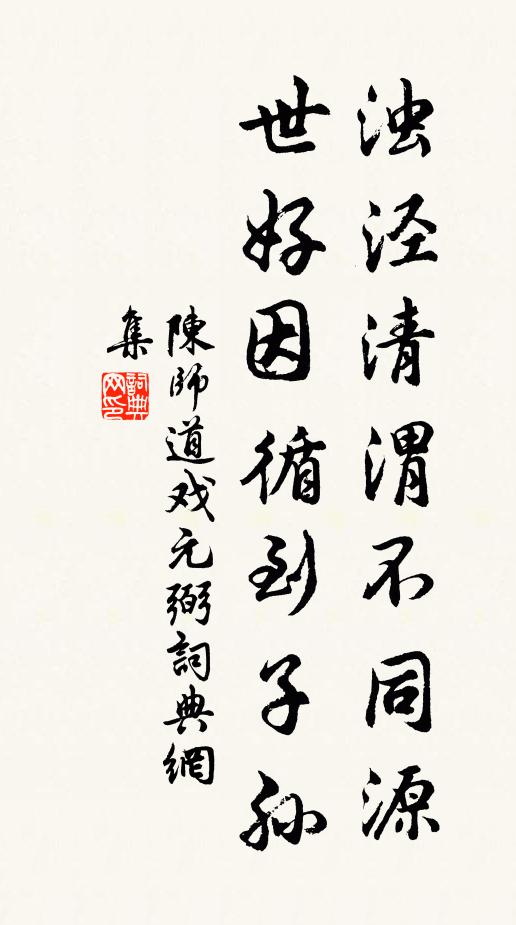 浊泾清渭不同源
世好因循到子孙
陳師道戏元弼詞典網
集
詞典網印